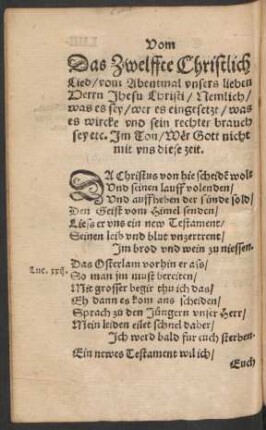 Vom
Das Zwelffte Christlich
Lied / vom Abentmal vnsers lieben
Herrn Jhesu Christi / Nemlich /
was es sey / wer es eingesetze / was
es wircke vnd sein rechter brauch
sey etc. Im Ton / Wër Gott nicht
mit vns diese zeit.
DA Christus von hie scheidẽ wolt
Vnd seinen lauff volenden /
Vnd auffheben der sünde sold /
Den Geist vom Himel senden /
Lies er vns ein new Testament /
Seinen leib vnd blut vnzertrent /
Im brod vnd wein zu niessen.
Das Osterlam vorhin er ass /
Luc. xxij.
So man jm must bereiten /
Mit grosser begir thu ich das /
Eh dann es kom ans scheiden /
Sprach zu den Jüngern vnser Herr /
Mein leiden eilet schnel daher /
Ich werd bald für euch sterben.
Ein newes Testament wil ich /
Euch